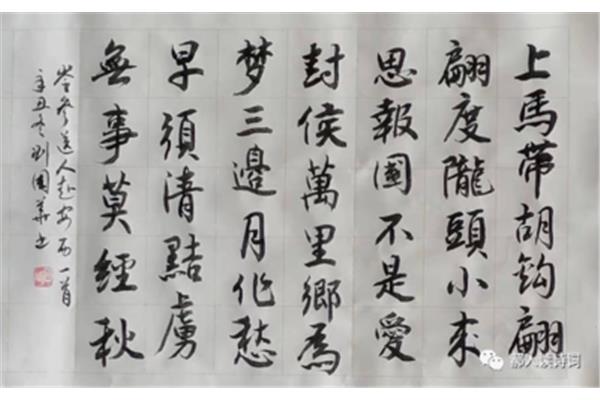 上馬帶胡鈎翩
翩度隴頭小来
思報國不是愛
封侯萬里鄉為
梦三邊月作愁
早須清黠虜
無事莫經秋
岑參送人赴安西一首
辛丑冬刘國華书
人读诗词